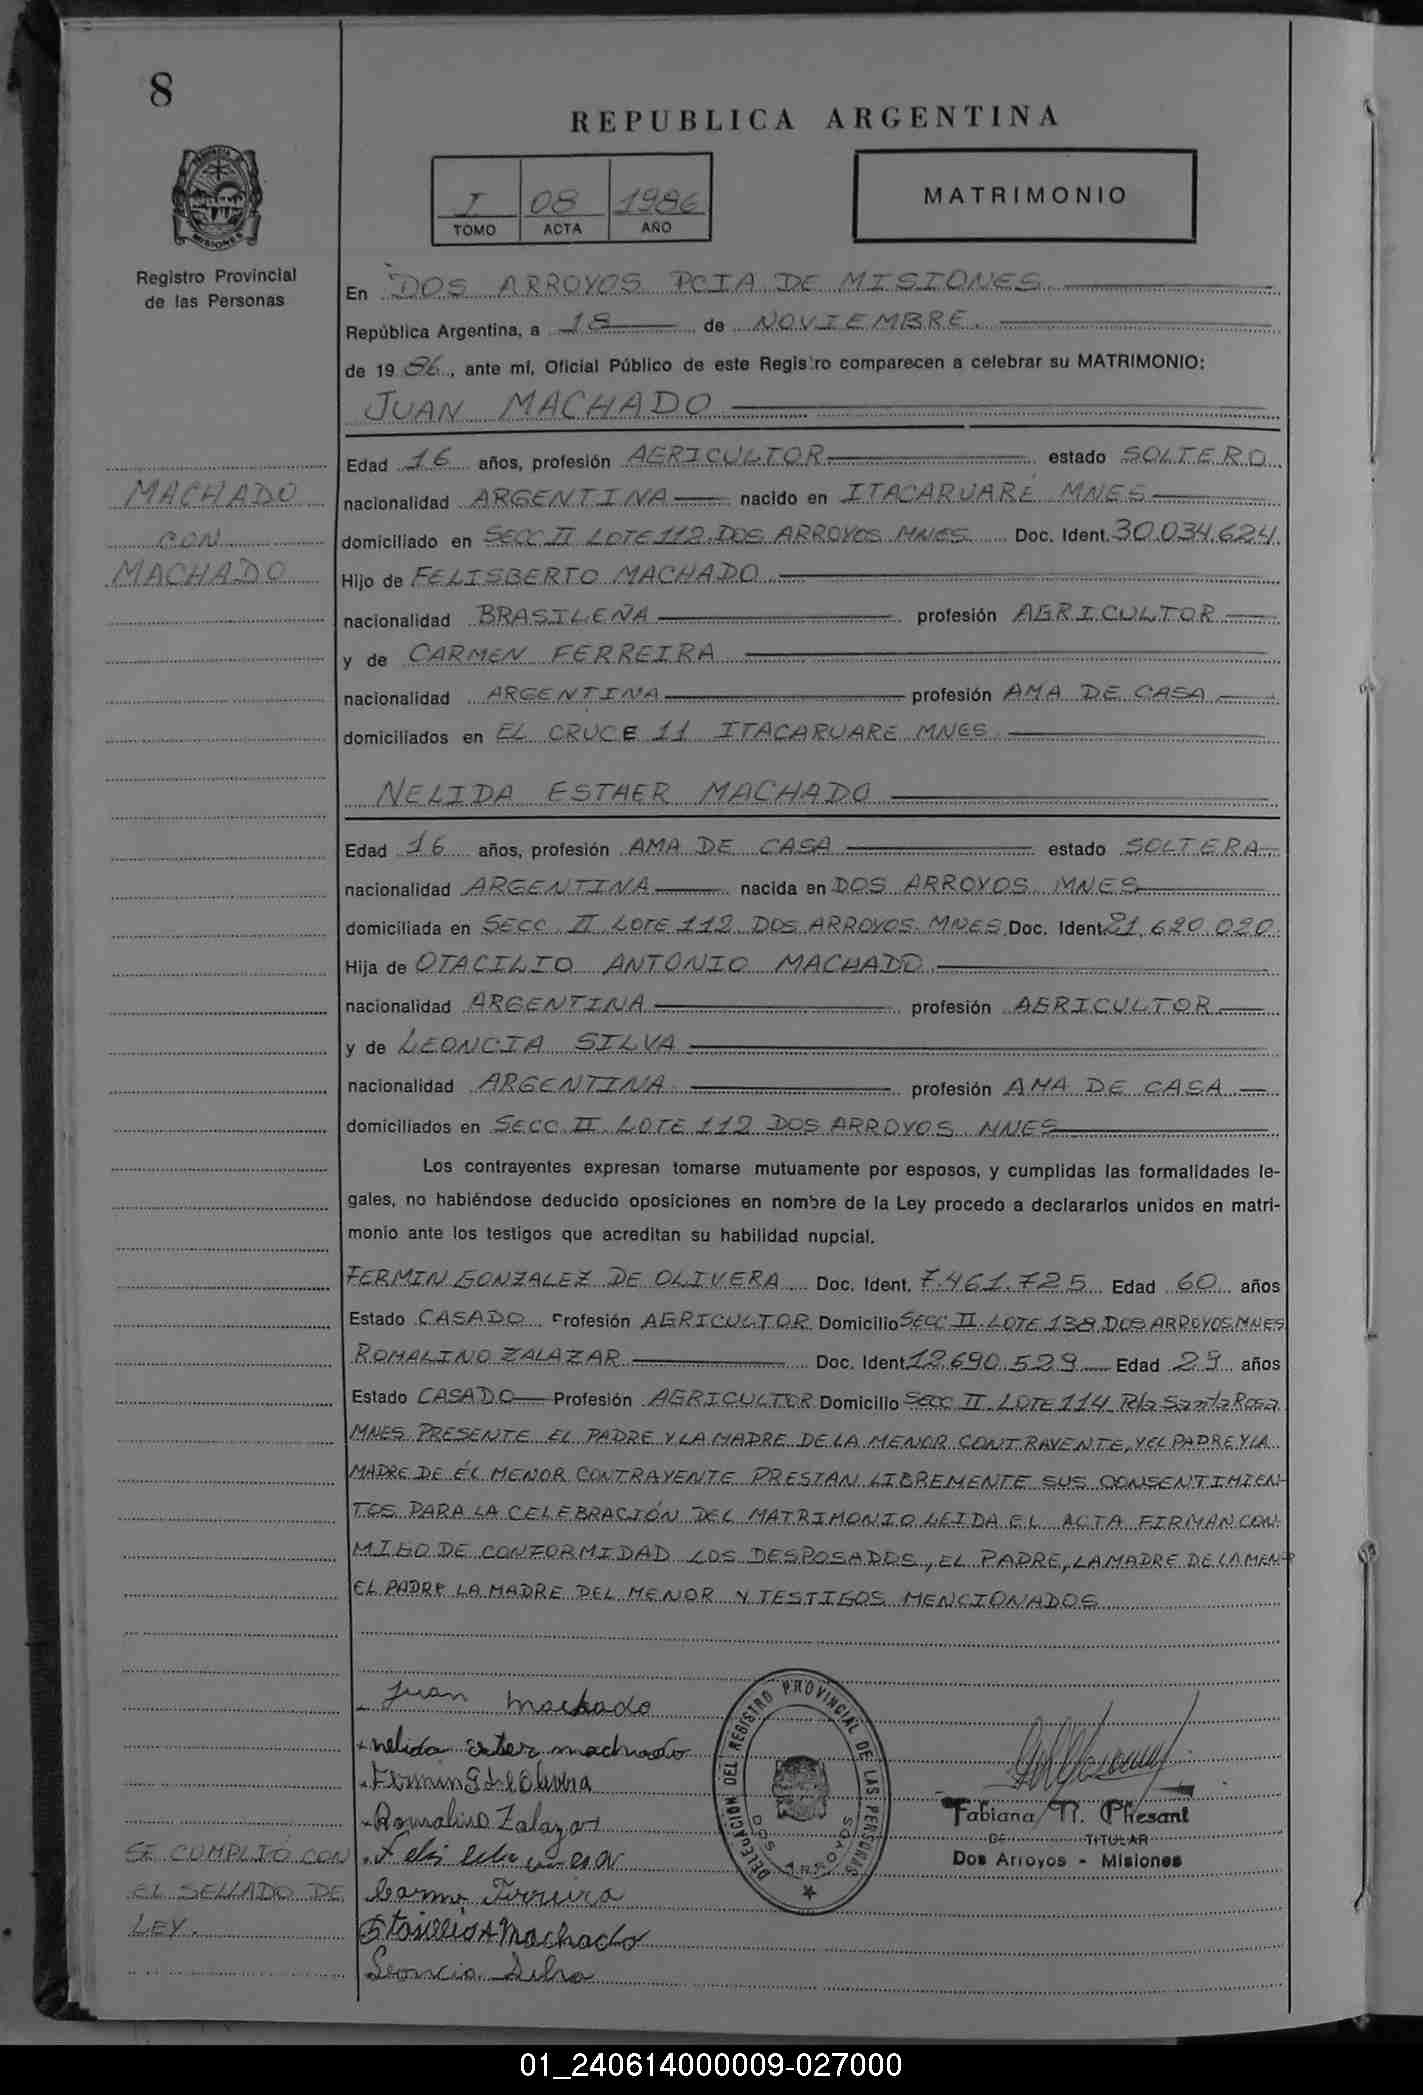 8
REPUBLICA ARGENTINA
I 08 1986
TOMO ACTA AÑO
MATRIMONIO
PROVINCIA DE
MISIONES
Registro Provincial
de las Personas
En DOS ARROYOS PCIA DE MISIONES
República Argentina, a 18 de NOVIEMBRE.
de 1986, ante mí, Oficial Público de este Registro comparecen a celebrar su MATRIMONIO:
JUAN MACHADO
Edad 16 años, profesión AGRICULTOR estado SOLTERO
MACHADO
nacionalidad ARGENTINA nacido en ITACARUARÉ MNES
CON
domiciliado en SECC II LOTE 112 DOS ARROYOS MNES Doc. Ident. 30.034.624
MACHADO
Hijo de FELISBERTO MACHADO
nacionalidad BRASILEÑA profesión AGRICULTOR
y de CARMEN FERREIRA
nacionalidad ARGENTINA profesión AMA DE CASA
domiciliados en EL CRUCE 11 ITACARUARE MNES
NELIDA ESTHER MACHADO
Edad 16 años, profesión AMA DE CASA estado SOLTERA
nacionalidad ARGENTINA nacida en DOS ARROYOS MNES
domiciliada en SECC II LOTE 112 DOS ARROYOS MNES Doc. Ident. 21.620.020
Hija de OTACILIO ANTONIO MACHADO
nacionalidad ARGENTINA profesión AGRICULTOR
y de LEONCIA SILVA
nacionalidad ARGENTINA profesión AMA DE CASA
domiciliados en SECC II LOTE 112 DOS ARROYOS MNES
Los contrayentes expresan tomarse mutuamente por esposos, y cumplidas las formalidades le-
gales, no habiéndose deducido oposiciones en nombre de la Ley procedo a declararlos unidos en matri-
monio ante los testigos que acreditan su habilidad nupcial.
FERMIN GONZALEZ DE OLIVERA Doc. Ident. 7.461.725 Edad 60 años
Estado CASADO Profesión AGRICULTOR Domicilio SECC II LOTE 138 DOS ARROYOS MNES
ROMALINO ZALAZAR Doc. Ident. 12.690.529 Edad 29 años
Estado CASADO Profesión AGRICULTOR Domicilio SECC II LOTE 114 Pto Santa Rosa
MNES PRESENTE EL PADRE Y LA MADRE DE LA MENOR CONTRAYENTE, Y EL PADRE Y LA
MADRE DE ÉL MENOR CONTRAYENTE PRESTAN LIBREMENTE SUS CONSENTIMIEN-
TOS PARA LA CELEBRACIÓN DEL MATRIMONIO LEIDA EL ACTA FIRMAN CON
MIGO DE CONFORMIDAD LOS DESPOSADOS, EL PADRE, LA MADRE DE LA MEN-R
EL PADRE LA MADRE DEL MENOR Y TESTIGOS MENCIONADOS
Juan Machado
nelida ester machado
Fermin G de Olivera
Romalino Zalazar
Carme Ferreira
Otasilio A Machado
Leoncia Silva
SE CUMPLIÓ CON
EL SELLADO DE
LEY.
DELEGACION DEL REGISTRO PROVINCIAL DE LAS PERSONAS
DOS ARROYOS
Fabiana N. Phesant
TITULAR
Dos Arroyos - Misiones
01_240614000009-027000